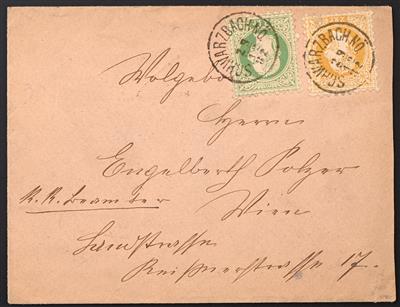 SCHWARZBACH N.O.
SCHWARZBACH N.O.
Wolgebo
Herrn
Engelberth Polzer
K. K. Beamter
Wien
Landstrasse
Reisnerstrasse 17.